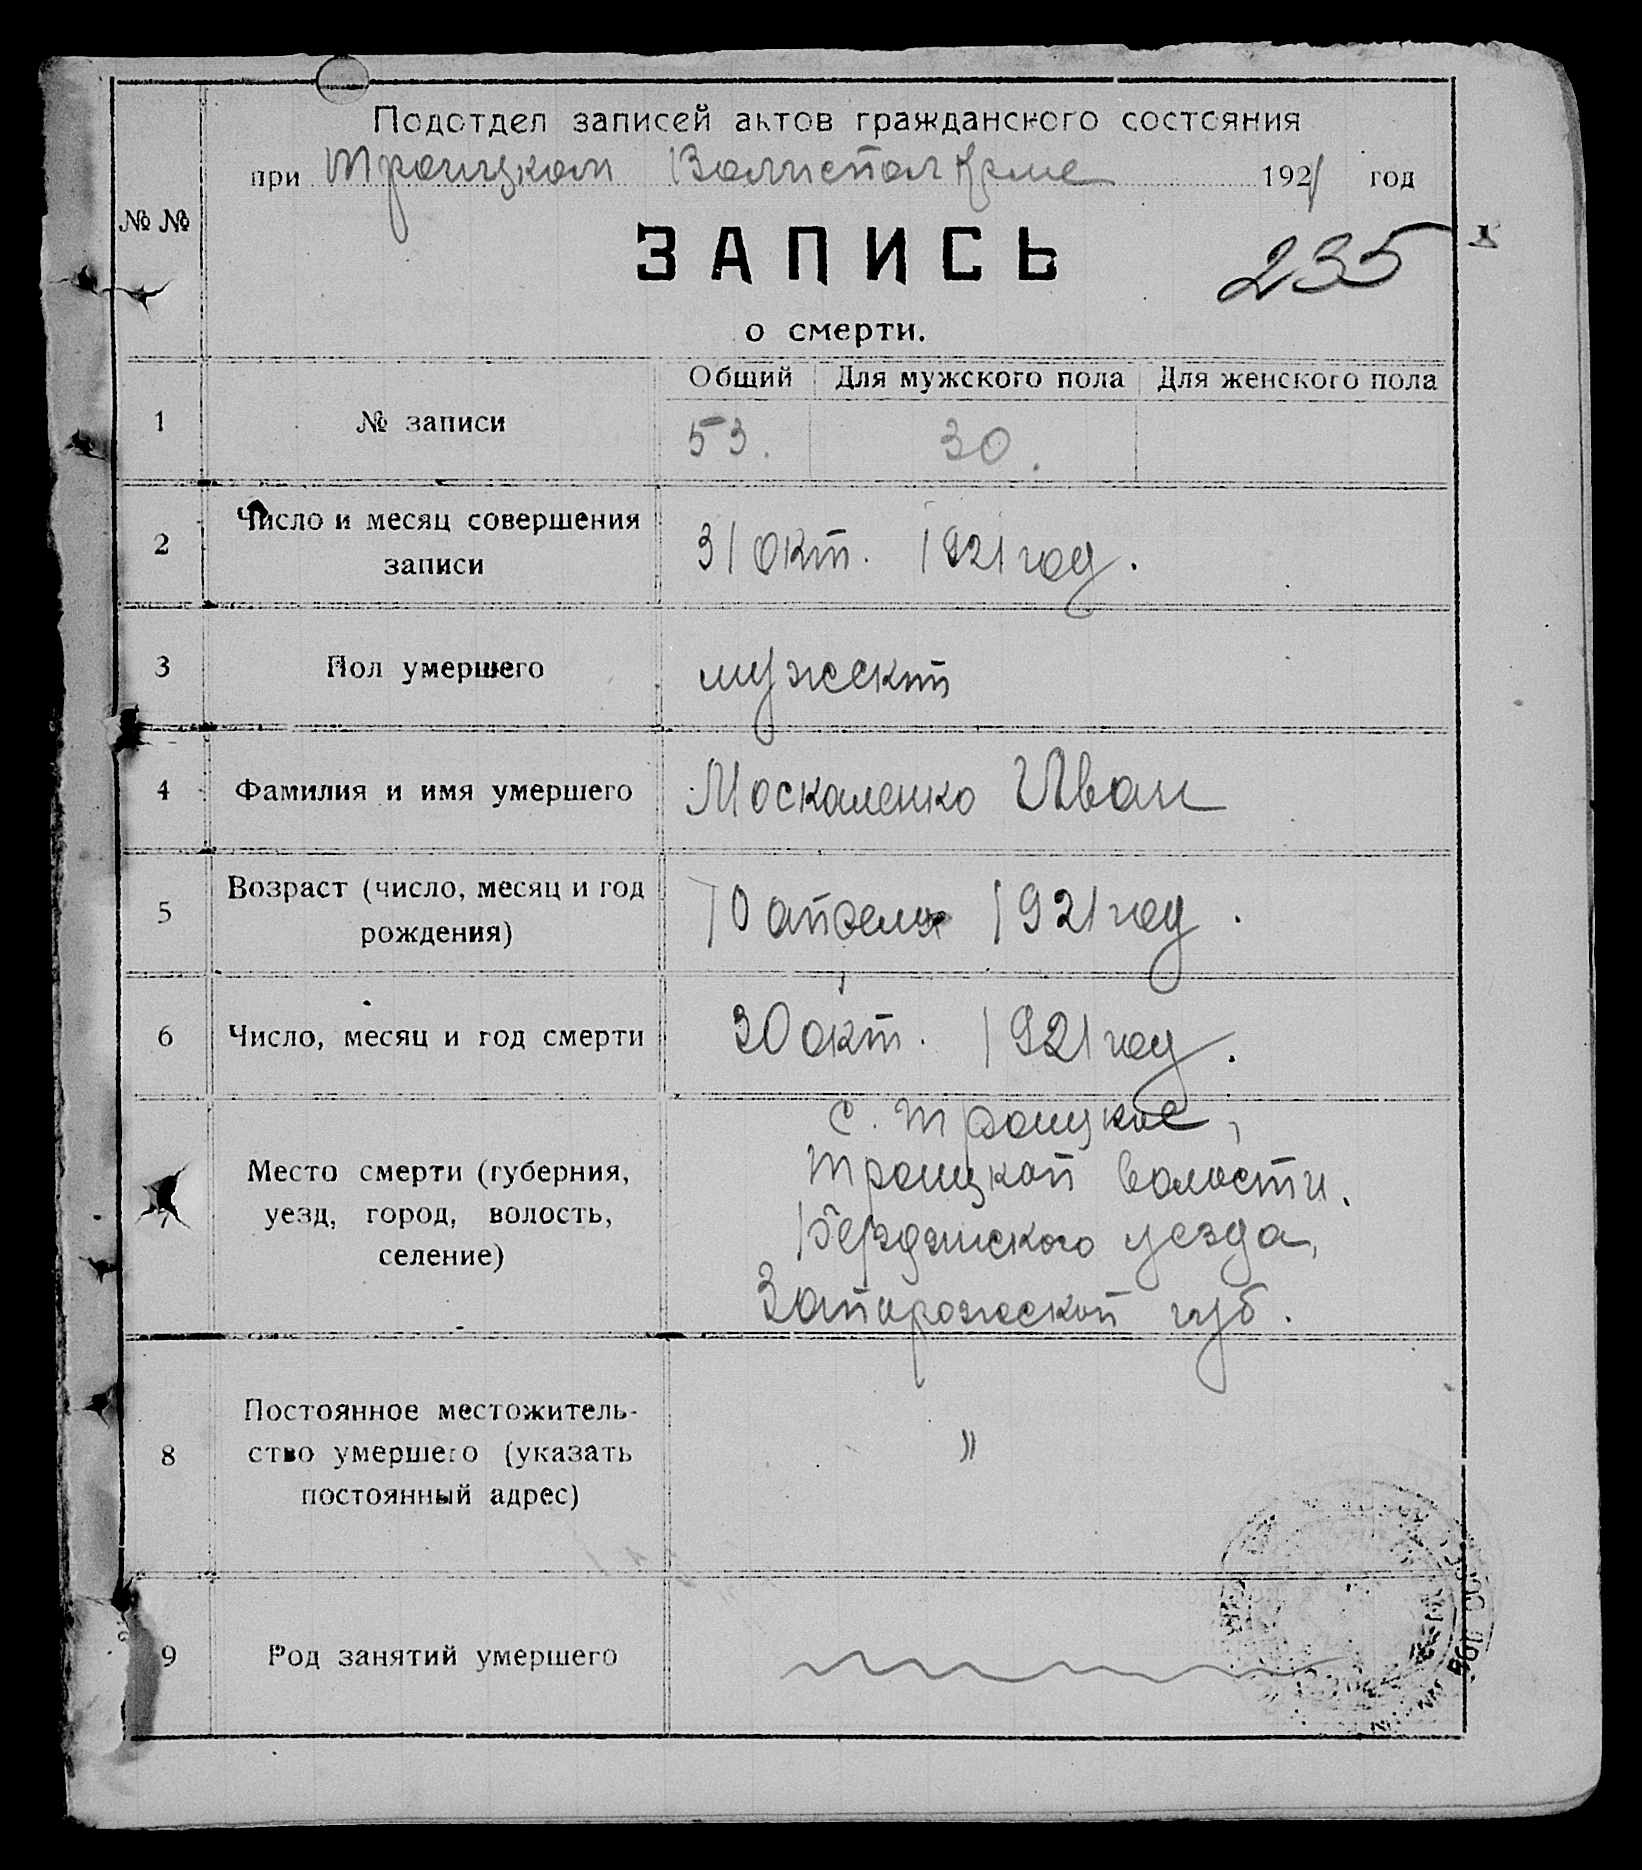 Подотдел записей актов гражданского состояния
при Троицком 1921 год
№ №
ЗАПИСЬ
235
о смерти.
Общий Для мужского пола Для женского пола
1 № записи 53. 30.
2 Число и месяц совершения
записи
31 окт. 1921 год.
3 Пол умершего мужеск
4 Фамилия и имя умершего Москаленко Иван
5 Возраст (число, месяц и год
рождения)
10 апреля 1921 год.
6 Число, месяц и год смерти 30 окт. 1921 год.
Место смерти (губерния,
уезд, город, волость,
селение)
с. Троицкое,
Троицкой волости.
Бердянского уезда,
Запорожской губ.
8 Постоянное местожитель-
ство умершего (указать
постоянный адрес)
"
9 Род занятий умершего